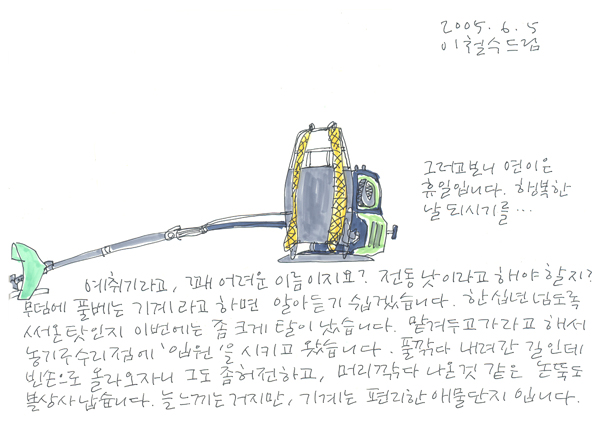 2005. 6. 5
이철수 드림
그러고보니 연이은
휴일입니다. 행복한
날 되시기를...
예취기라고, 꽤 어려운 이름이지요? 전동 낫이라고 해야 할지?
무덤에 풀베는 기계라고 하면 알아듣기 쉽겠습니다. 한 십년 넘도록
써온 탓인지 이번에는 좀 크게 탈이 났습니다. 맡겨두고 가라고 해서
농기구수리점에 '입원'을 시키고 왔습니다. 풀깎다 내려간 길인데
빈손으로 올라오자니 그도 좀 허전하고, 머리깎다 나온것 같은 논뚝도
볼상사납습니다. 늘 느끼는 거지만, 기계는 편리한 애물단지 입니다.